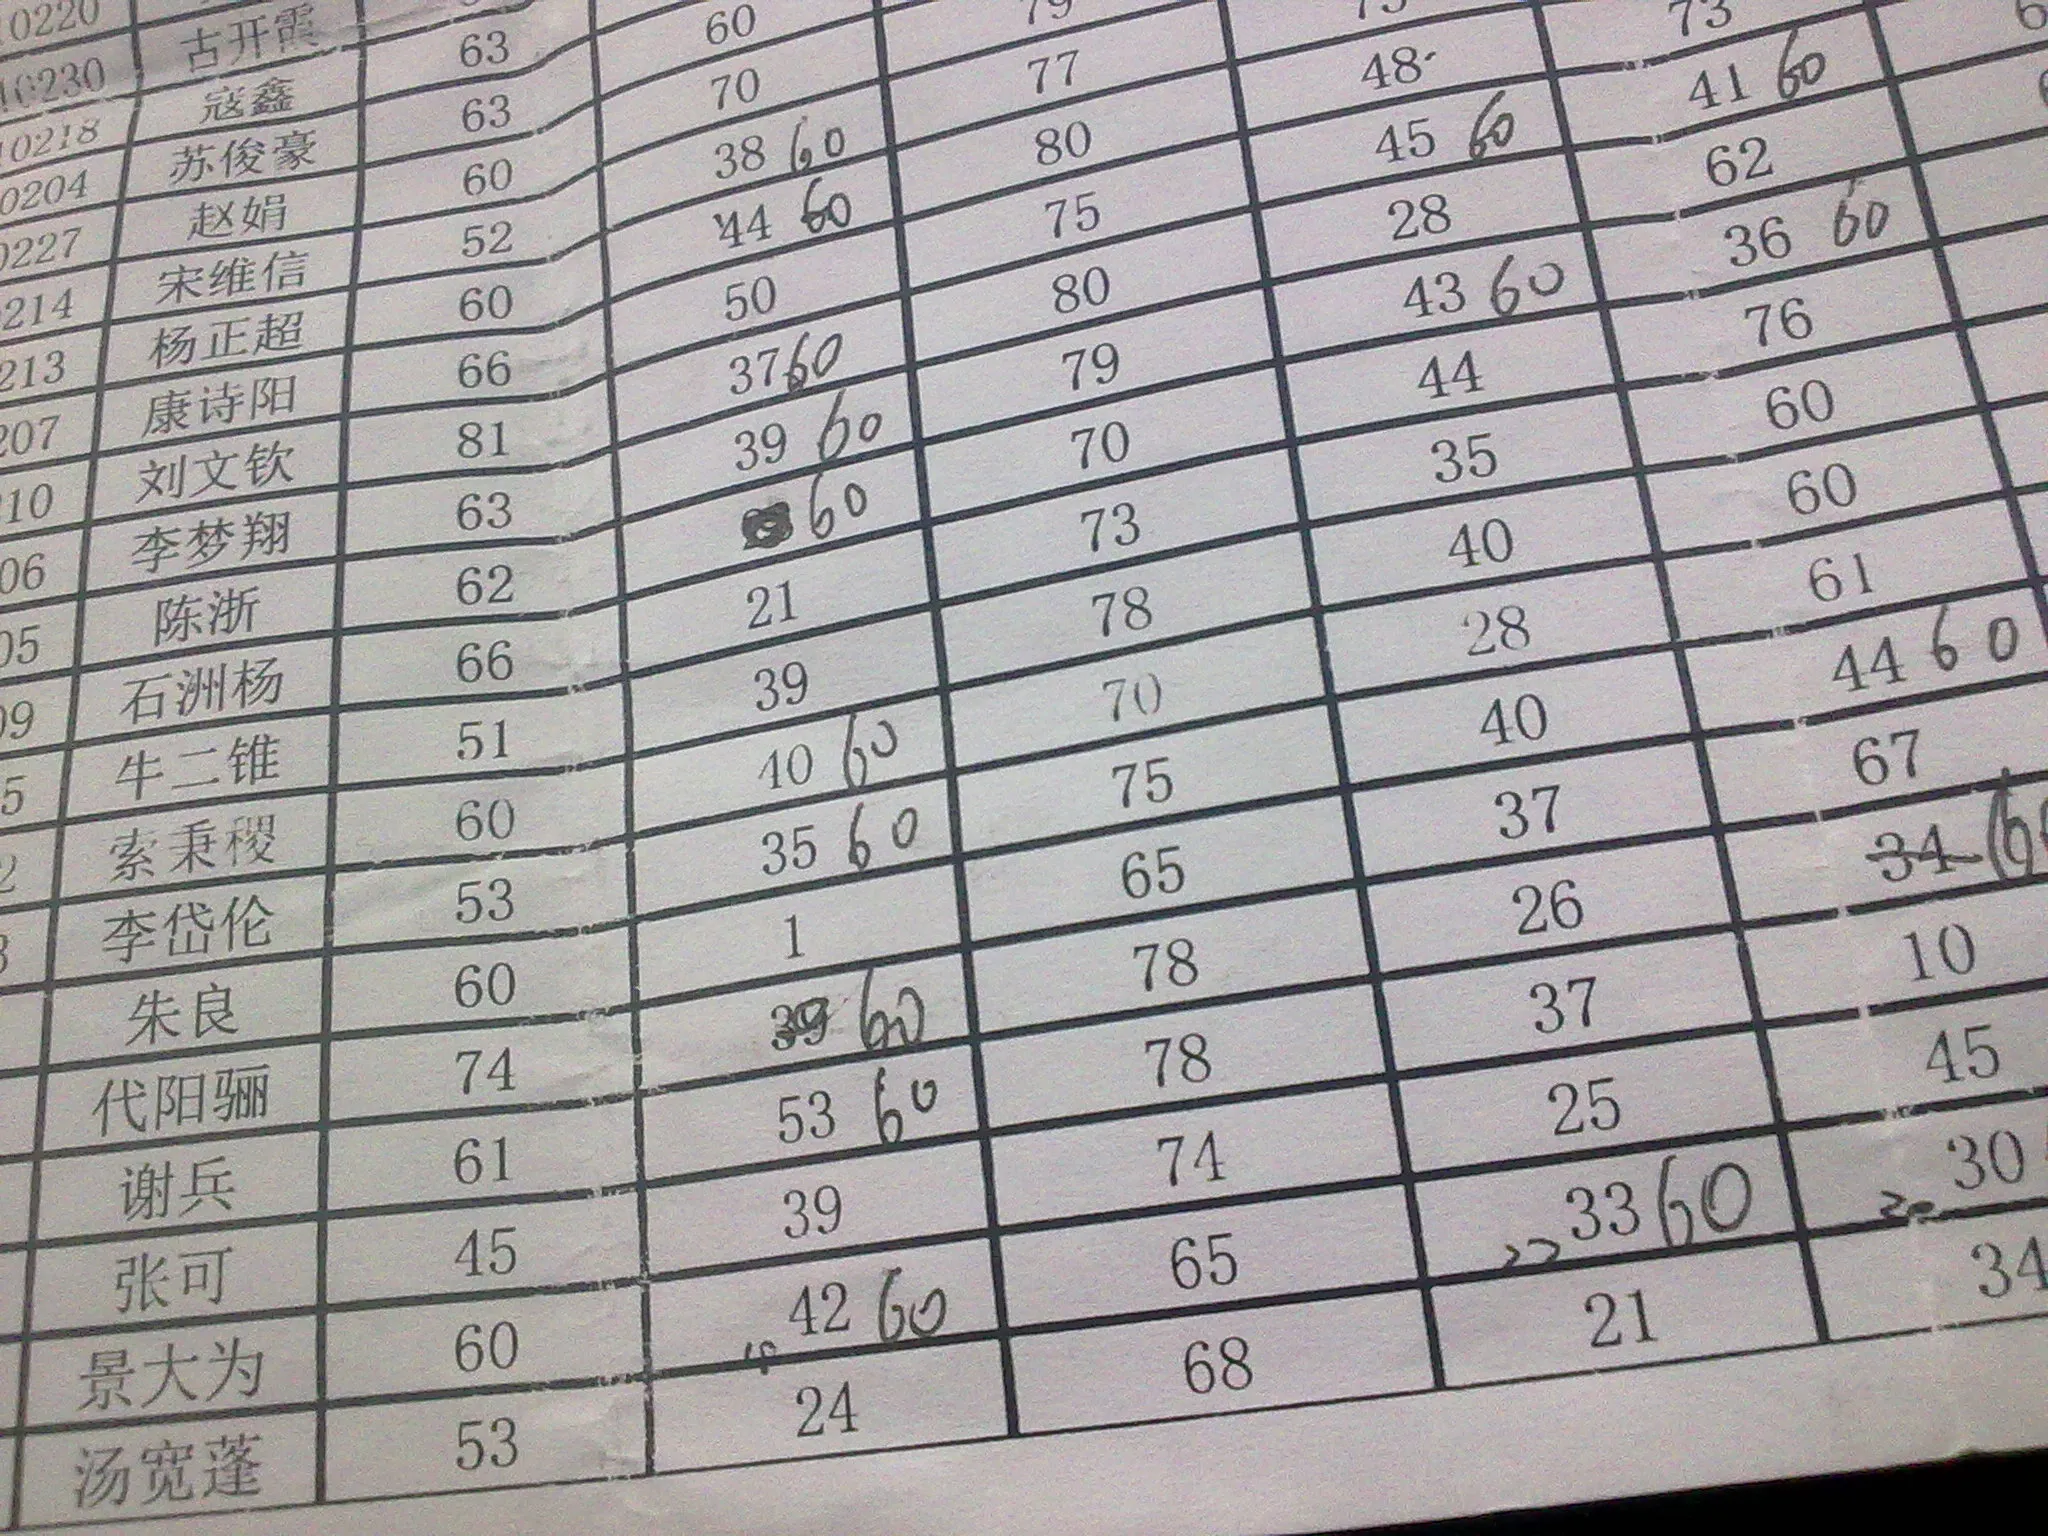 0220
10230 古开霞
10218 寇鑫 63
0204 苏俊豪 63 60
0227 赵娟 60 70 79
214 宋维信 52 38 60 77
213 杨正超 60 44 60 80 48 73
207 康诗阳 66 50 75 45 60 41 60
10 刘文钦 81 37 60 80 28 62
06 李梦翔 63 39 60 79 43 60 36 60
05 陈浙 62 60 70 44 76
09 石洲杨 66 21 73 35 60
5 牛二锥 51 39 78 40 60
2 索秉稷 60 40 60 70 28 61
3 李岱伦 53 35 60 75 40 44 60
朱良 60 1 65 37 67
代阳骊 74 39 60 78 26 34 60
谢兵 61 53 60 78 37 10
张可 45 39 74 25 45
景大为 60 42 60 65 33 60 30
汤宽蓬 53 24 68 21 34